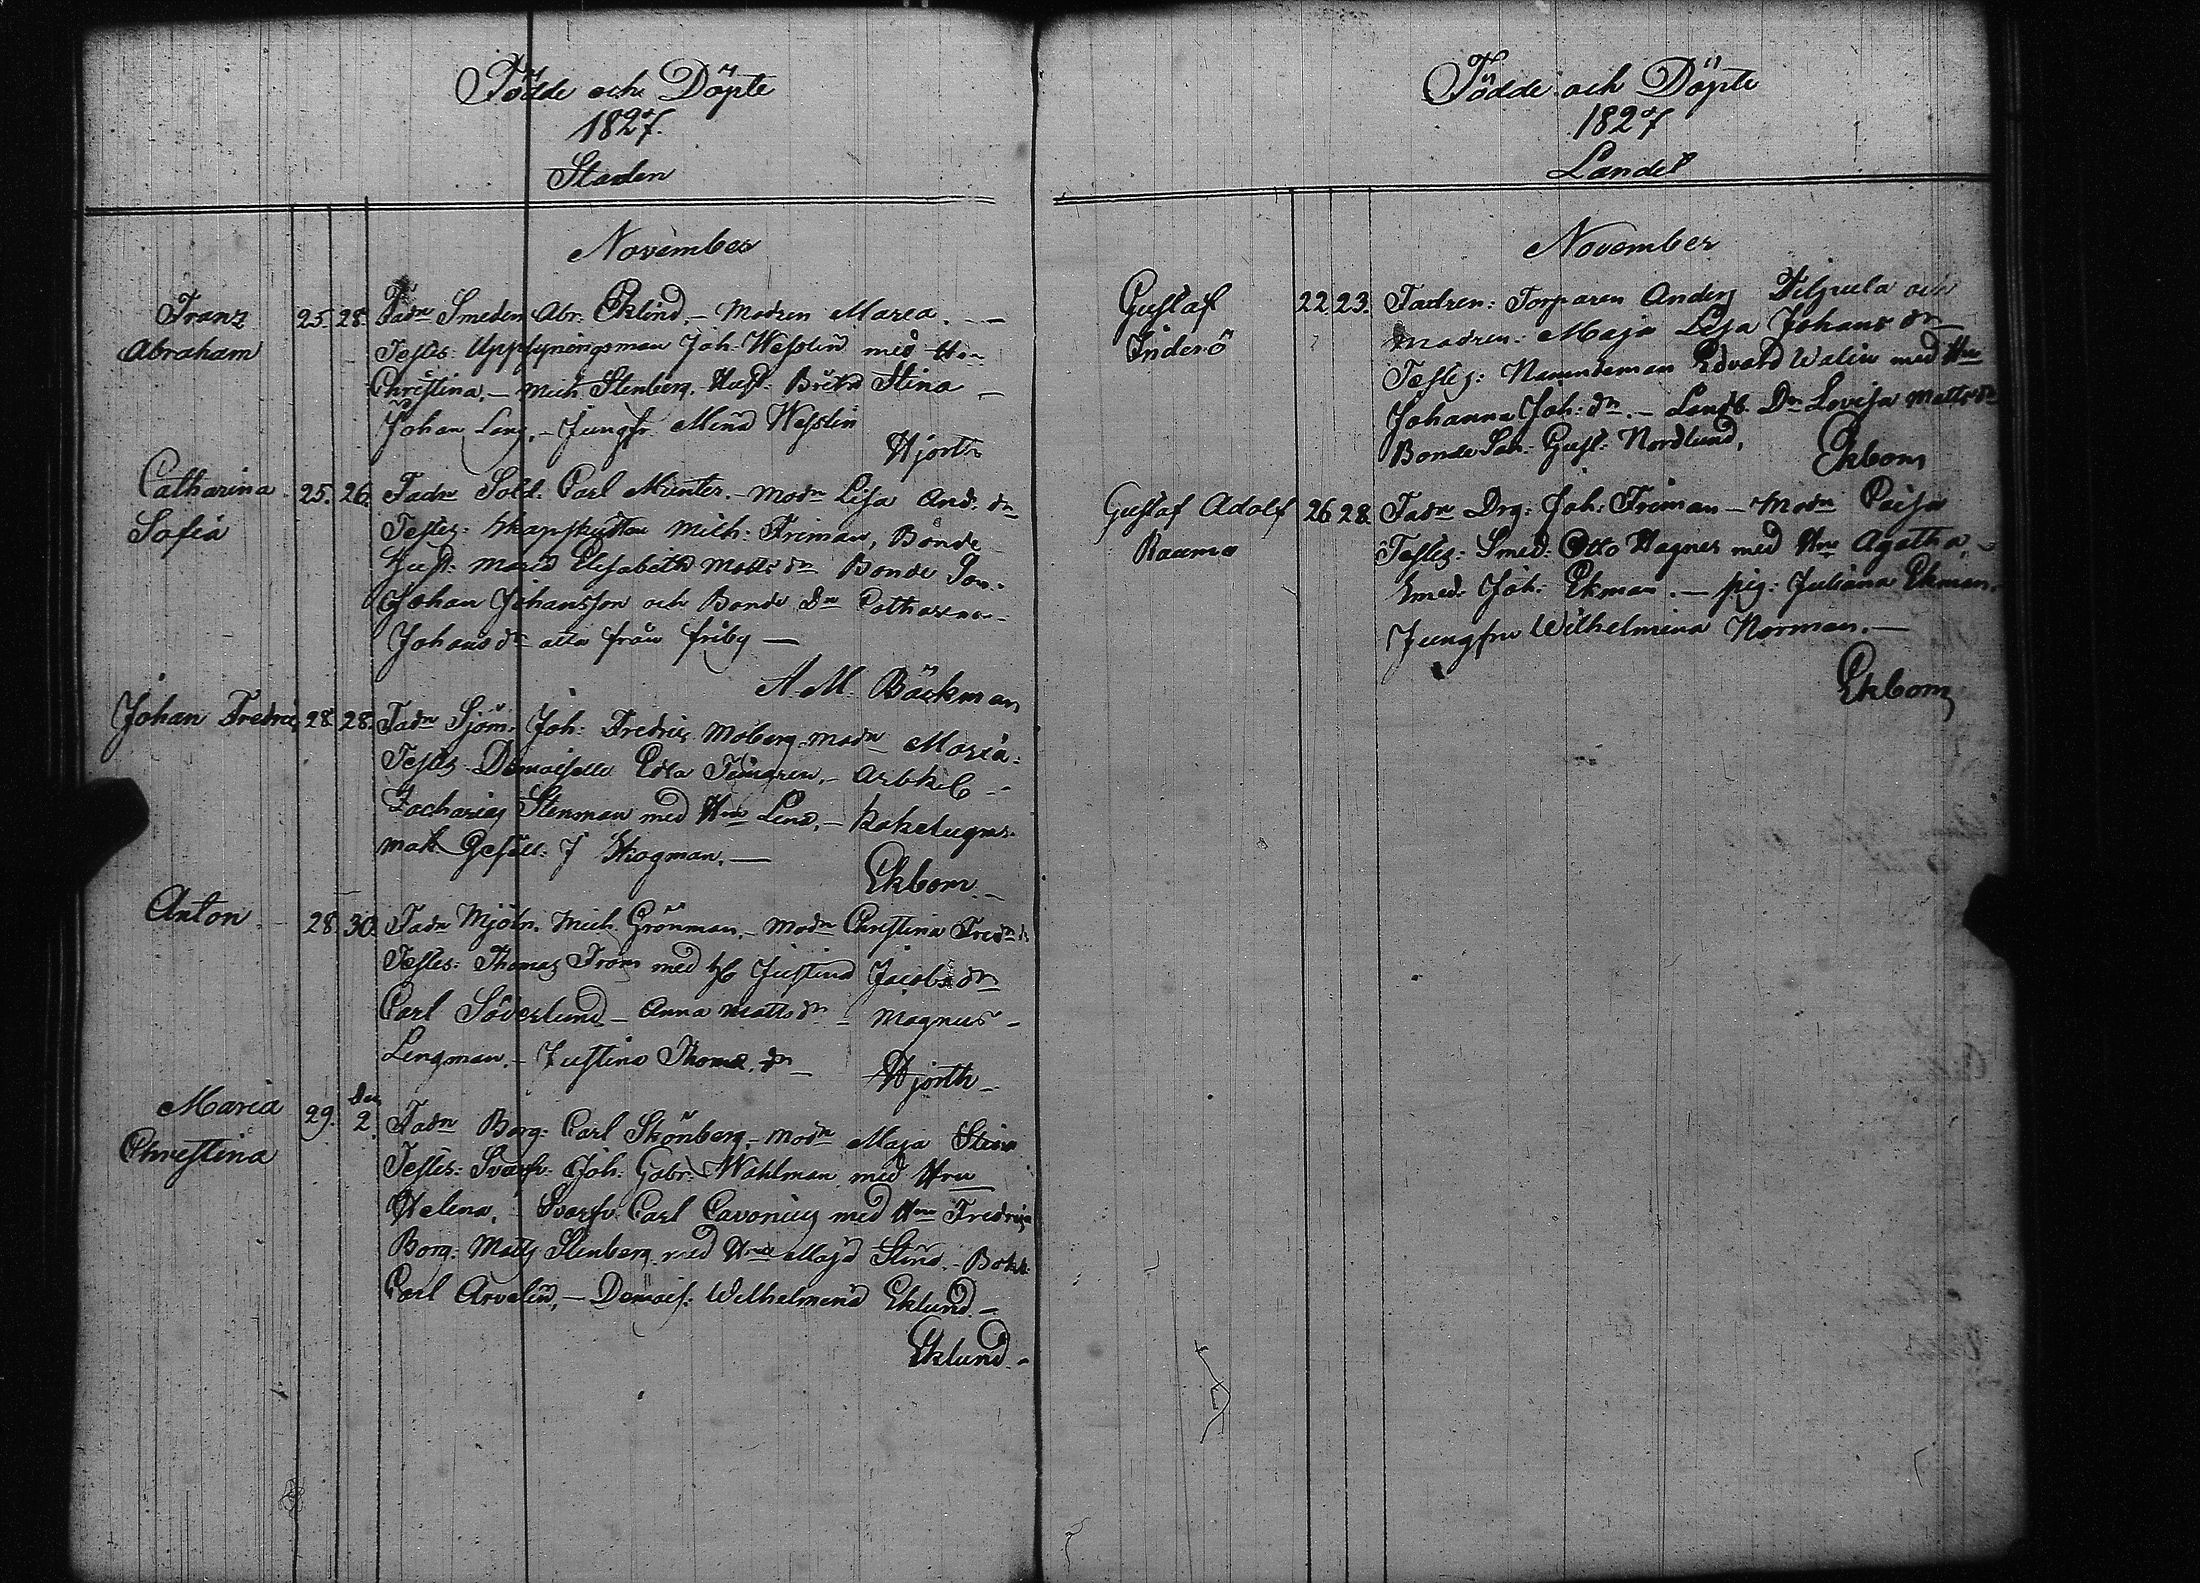 Födde och Döpte
1827.
Staden
November
Franz 25. 28. Fadn Smeden Abr. Eklind. – Modren Maria. –
Abraham Testes: Uppsyningsman Joh. Wesslin med Hu
Christina. – Mich Stenberg. Hust. Brita Stina –
Johan Lang. – Jungfr. Mina Wesslin
Hjorth
Catharina 25. 26. Fadn Sold. Carl Munter. – Modn Lisa And. dn
Sofia Testes: Mich: Friman, Bonde
Hust: Maria Elisabeth Matts dn Bonde Son.
Johan Johansson och Bonde Dn Catharina
Johans dn alla från Friby —
A. M. Bäckman
Johan Fredric 28. 28. Fadn Sjöm. Joh: Fredric Moberg. Modn Maria:
Testes Demoiselle Edla – Arbk
Zacharias Stensman med Hru Lena, – Kakelugns
mak. Gesäll: J Skogman. —
Ekbom. –
Anton 28. 30. Fadn Mjöln. Mich. Grönman. – Modn Christina Fred dn
Testes: Thomas From med h Justina Jacobs dn
Carl Söderlund – Anna Matts dn – Magnus –
Lengman. – Justina Thom. dn –
Hjorth –
Maria 29. Dec 2. Fadn Borg: Carl Skönberg. – Modn Maja Stina
Christina Testes: Svarfv. Joh: Gabr: Wahlman med Hru
Helena. Svarfv. Carl Cavonius med Hru Fredrica
Borg: Matts Stenberg med Hru Maja Stina. – Bokh.
Carl Arvelin, – Demois. Wilhelmina Eklund –
Eklund –
Födde och Döpte
1827
Landet
November
Gustaf 22 23. Fadren: Torparen Anders Filpula och
Inderö Madren: Maja Lisa Johans dn
Testes: Nämndeman Edvard Walin med Hu
Johanna Joh: dn. – Landb. Dn Lovisa Matts dn
Bonde Son: Gust: Nordlund,
Ekbom
Gustaf Adolf 26 28. Fadn Drg: Joh: Friman – Modn Caisa
Rauma Testes: Smed: Otto Hagner med Hru Agatha, –
Smed: Joh: Ekman. — pig: Juliana Ekman.
Jungfru Wilhelmina Norman. —
Ekbom